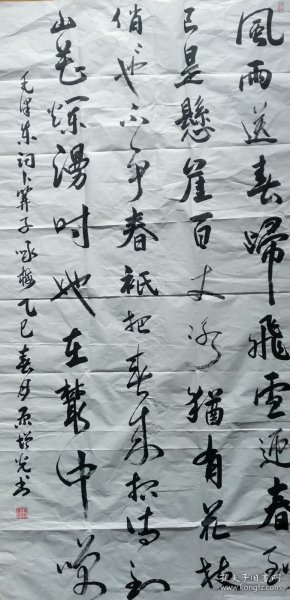 風雨送春歸飛雪迎春到
已是懸崖百丈冰猶有花枝
俏俏也不爭春祇把春來報待到
山花爛漫時她在叢中笑
毛澤東词卜算子咏梅乙巳春月原增光书
孔夫子旧书网